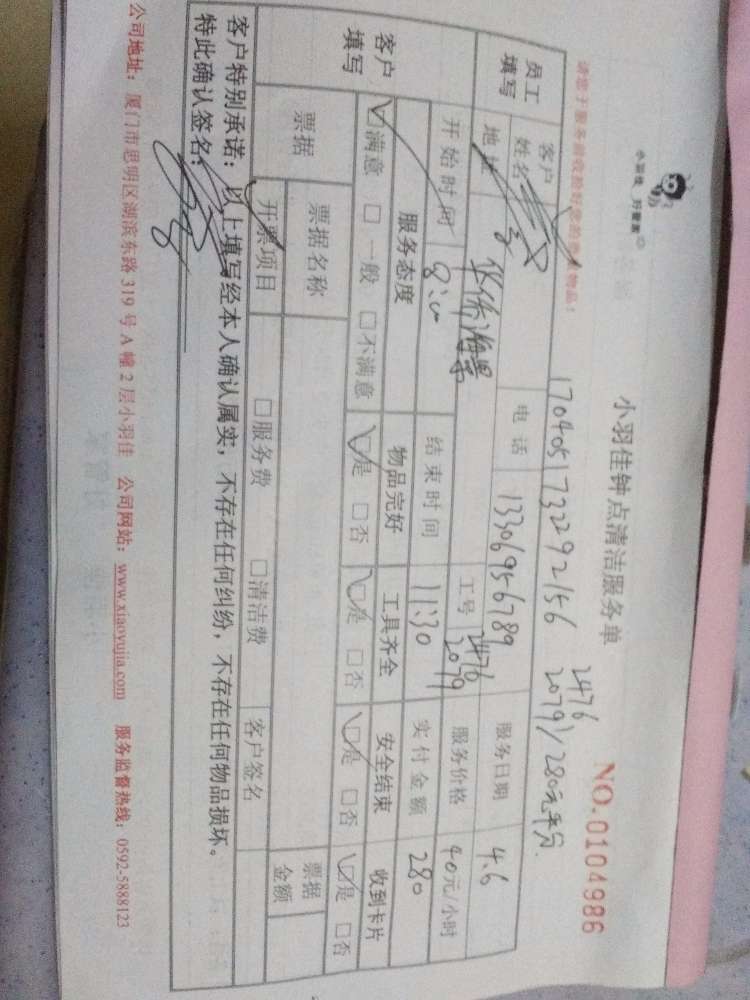 小羽佳 好管家
小羽佳钟点清洁服务单
NO.0104986
请您于服务前收拾好您的贵重物品!
170405173292156
2476
2079)/280元平分.
员工填写
客户姓名
电话 13306956789
服务日期 4.6
地址 华侨海景
工号 2476 2079
服务价格 40元/小时
开始时间 8:00
结束时间 11:30
实付金额 280
客户填写
服务态度 物品完好 工具齐全 安全结束 收到卡片
☑满意 □一般 □不满意 ☑是 □否 ☑是 □否 ☑是 □否 ☑是 □否
票据
票据名称
票据金额
开票项目 □服务费 □清洁费 客户签名
客户特别承诺:以上填写经本人确认属实,不存在任何纠纷,不存在任何物品损坏。
特此确认签名:
公司地址:厦门市思明区湖滨东路319号A幢2层小羽佳 公司网站:www.xiaoyujia.com 服务监督热线:0592-5888123